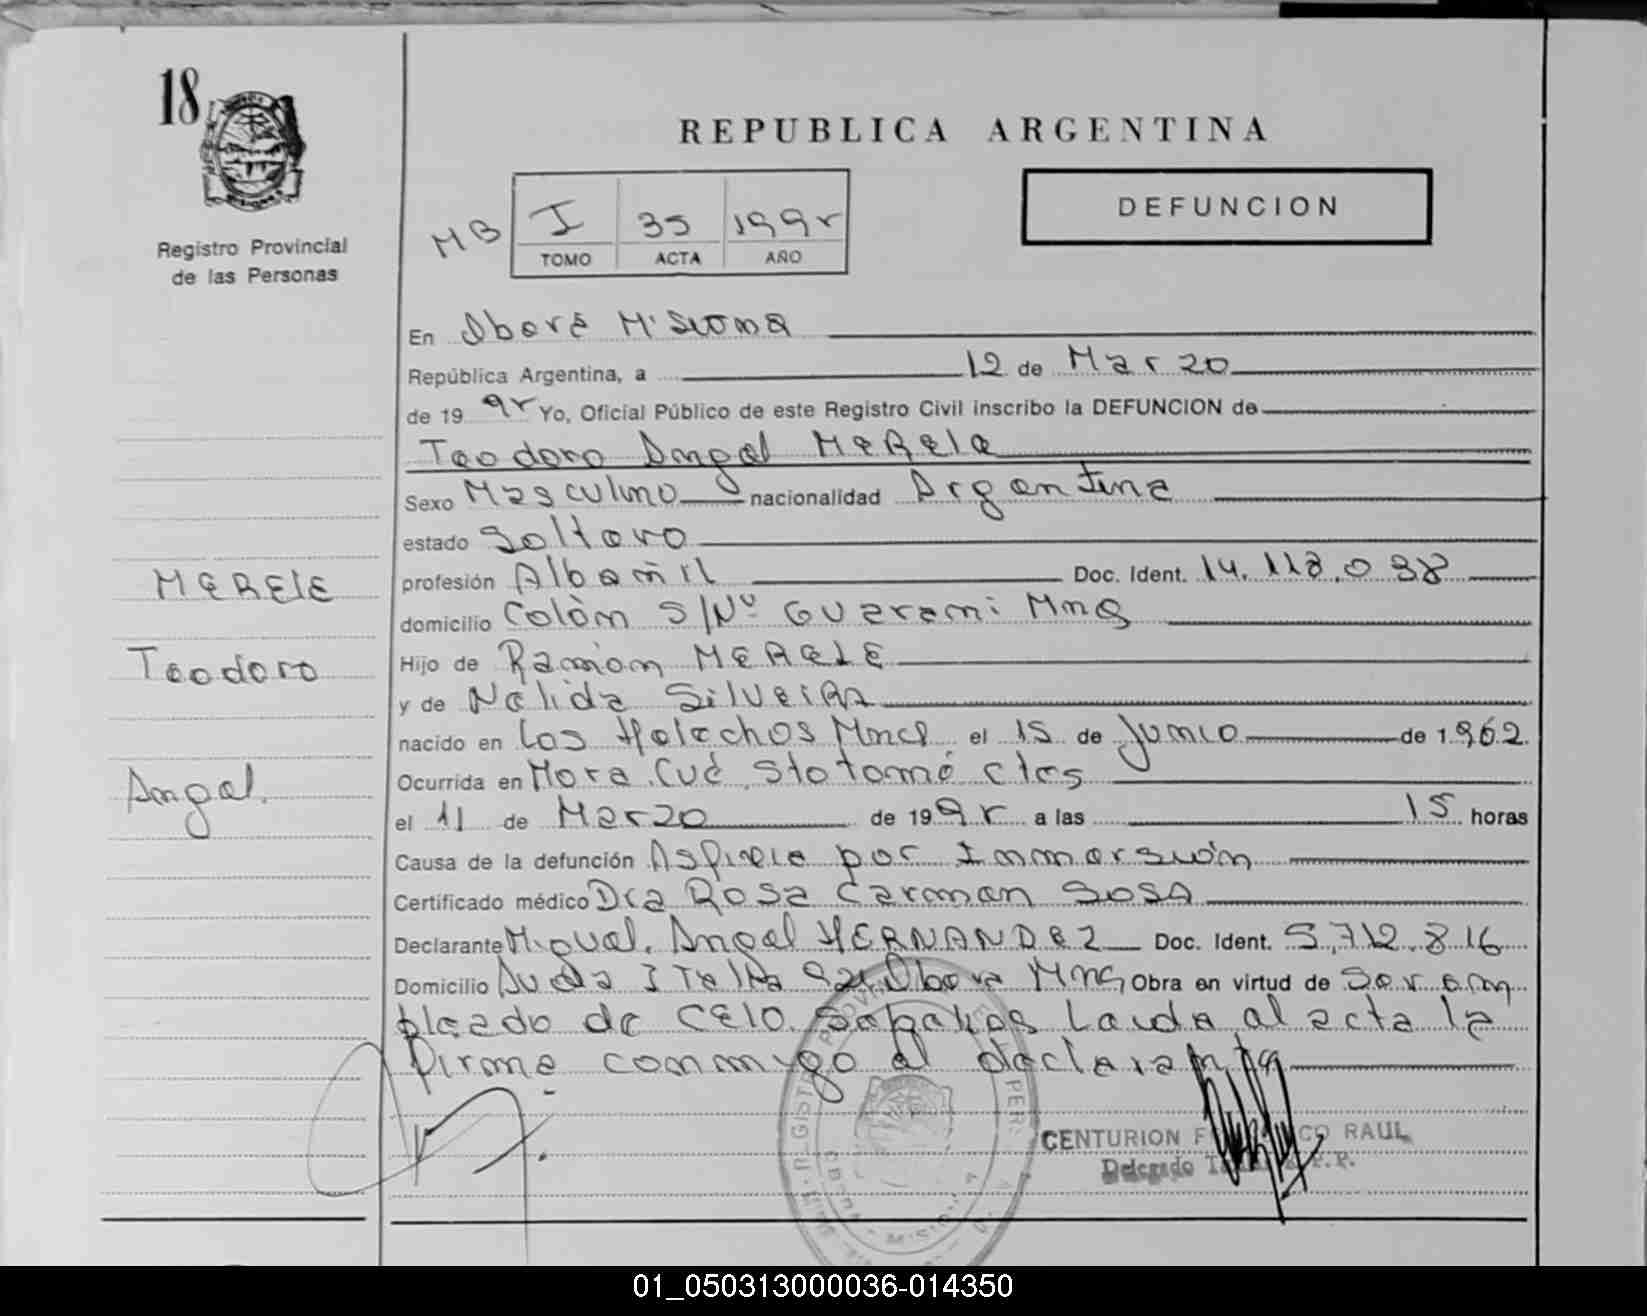 18
REPUBLICA ARGENTINA
Registro Provincial
de las Personas
MB
I 35 199r
TOMO ACTA AÑO
DEFUNCION
En Oberá Misiones
República Argentina, a 12 de Marzo
de 19 9r Yo, Oficial Público de este Registro Civil inscribo la DEFUNCION de
Teodoro Angel MERELE
Sexo Masculino nacionalidad Argentina
estado Soltero
profesión Albañil Doc. Ident. 14.118.098
domicilio Colón S/Nº Guarani Mnes
Hijo de Ramón MERELE
y de Nelida SilveiRA
nacido en Los Helechos Mnes el 15 de Junio de 1.962
Ocurrida en Hora Cué Stotomé ctes
el 11 de Marzo de 19 9r a las 15 horas
Causa de la defunción Asfixia por Inmersión
Certificado médico Dra Rosa Carmen SOSA
Declarante Miguel Angel HERNANDEZ Doc. Ident. 5.712.816
Domicilio Avda ITalia Oberá Mnes Obra en virtud de Ser em
pleado de Leida el acta la
firma conmigo el declarante
MERELE
Teodoro
Angel.
CENTURION RAUL
Delegado
01_050313000036-014350